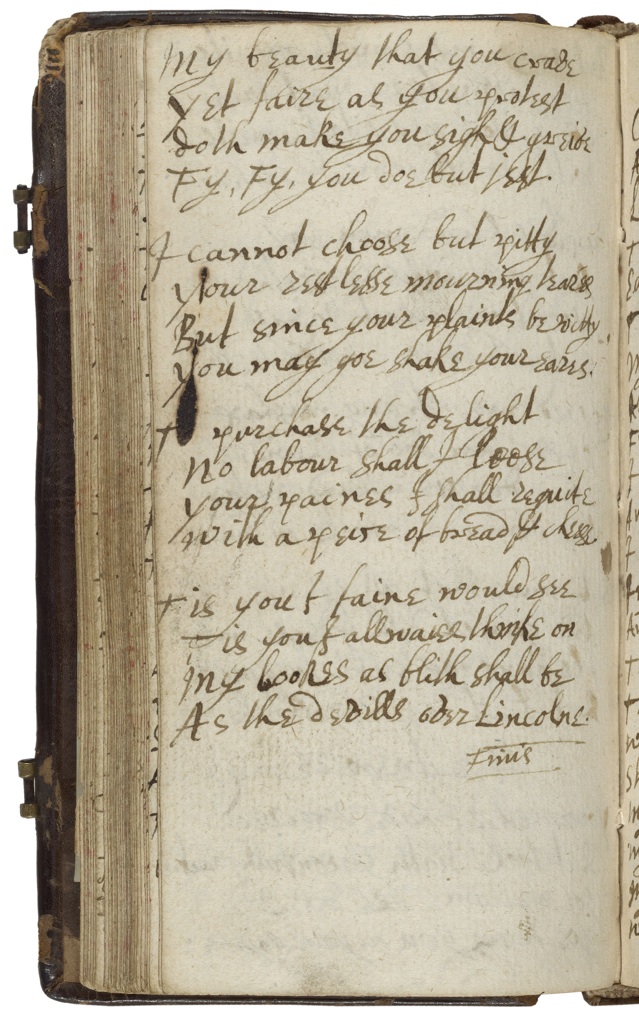 My beauty that you crave
yet faire as you protest
doth make you sigh & greive
Fy, Fy, you doe but jest.
I cannot choose but pitty
your restlesse mourning teares
But since your plaints be witty
you may goe shake your eares.
T purchase the delight
No labour shall I loose
your paines I shall requite
with a peice of bread & cheese
T is you I faine would see
T is you I allwaies thinke on
My lookes as blith shall be
As the devills over Lincolne.
Finis